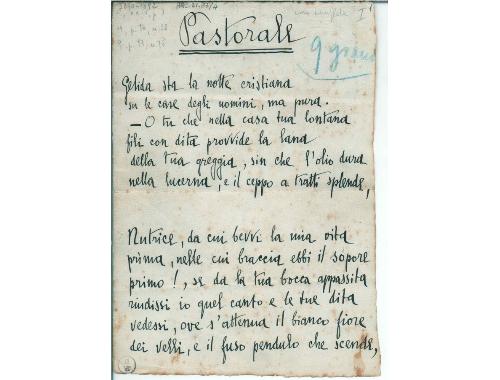 Pastorale
9 giugno
Gelida sta la notte cristiana
su le case degli uomini, ma pura.
— O tu che nella casa tua lontana
fili con dita provvide la lana
della tua greggia, sin che l'olio dura
nella lucerna, e il ceppo a tratti splende,
Nutrice, da cui bevvi la mia vita
prima, nelle cui braccia ebbi il sopore
primo!, se da la tua bocca appassita
riudissi io quel canto e le tue dita
vedessi, ove s'attenua il bianco fiore
dei velli, e il fuso pendulo che scende,